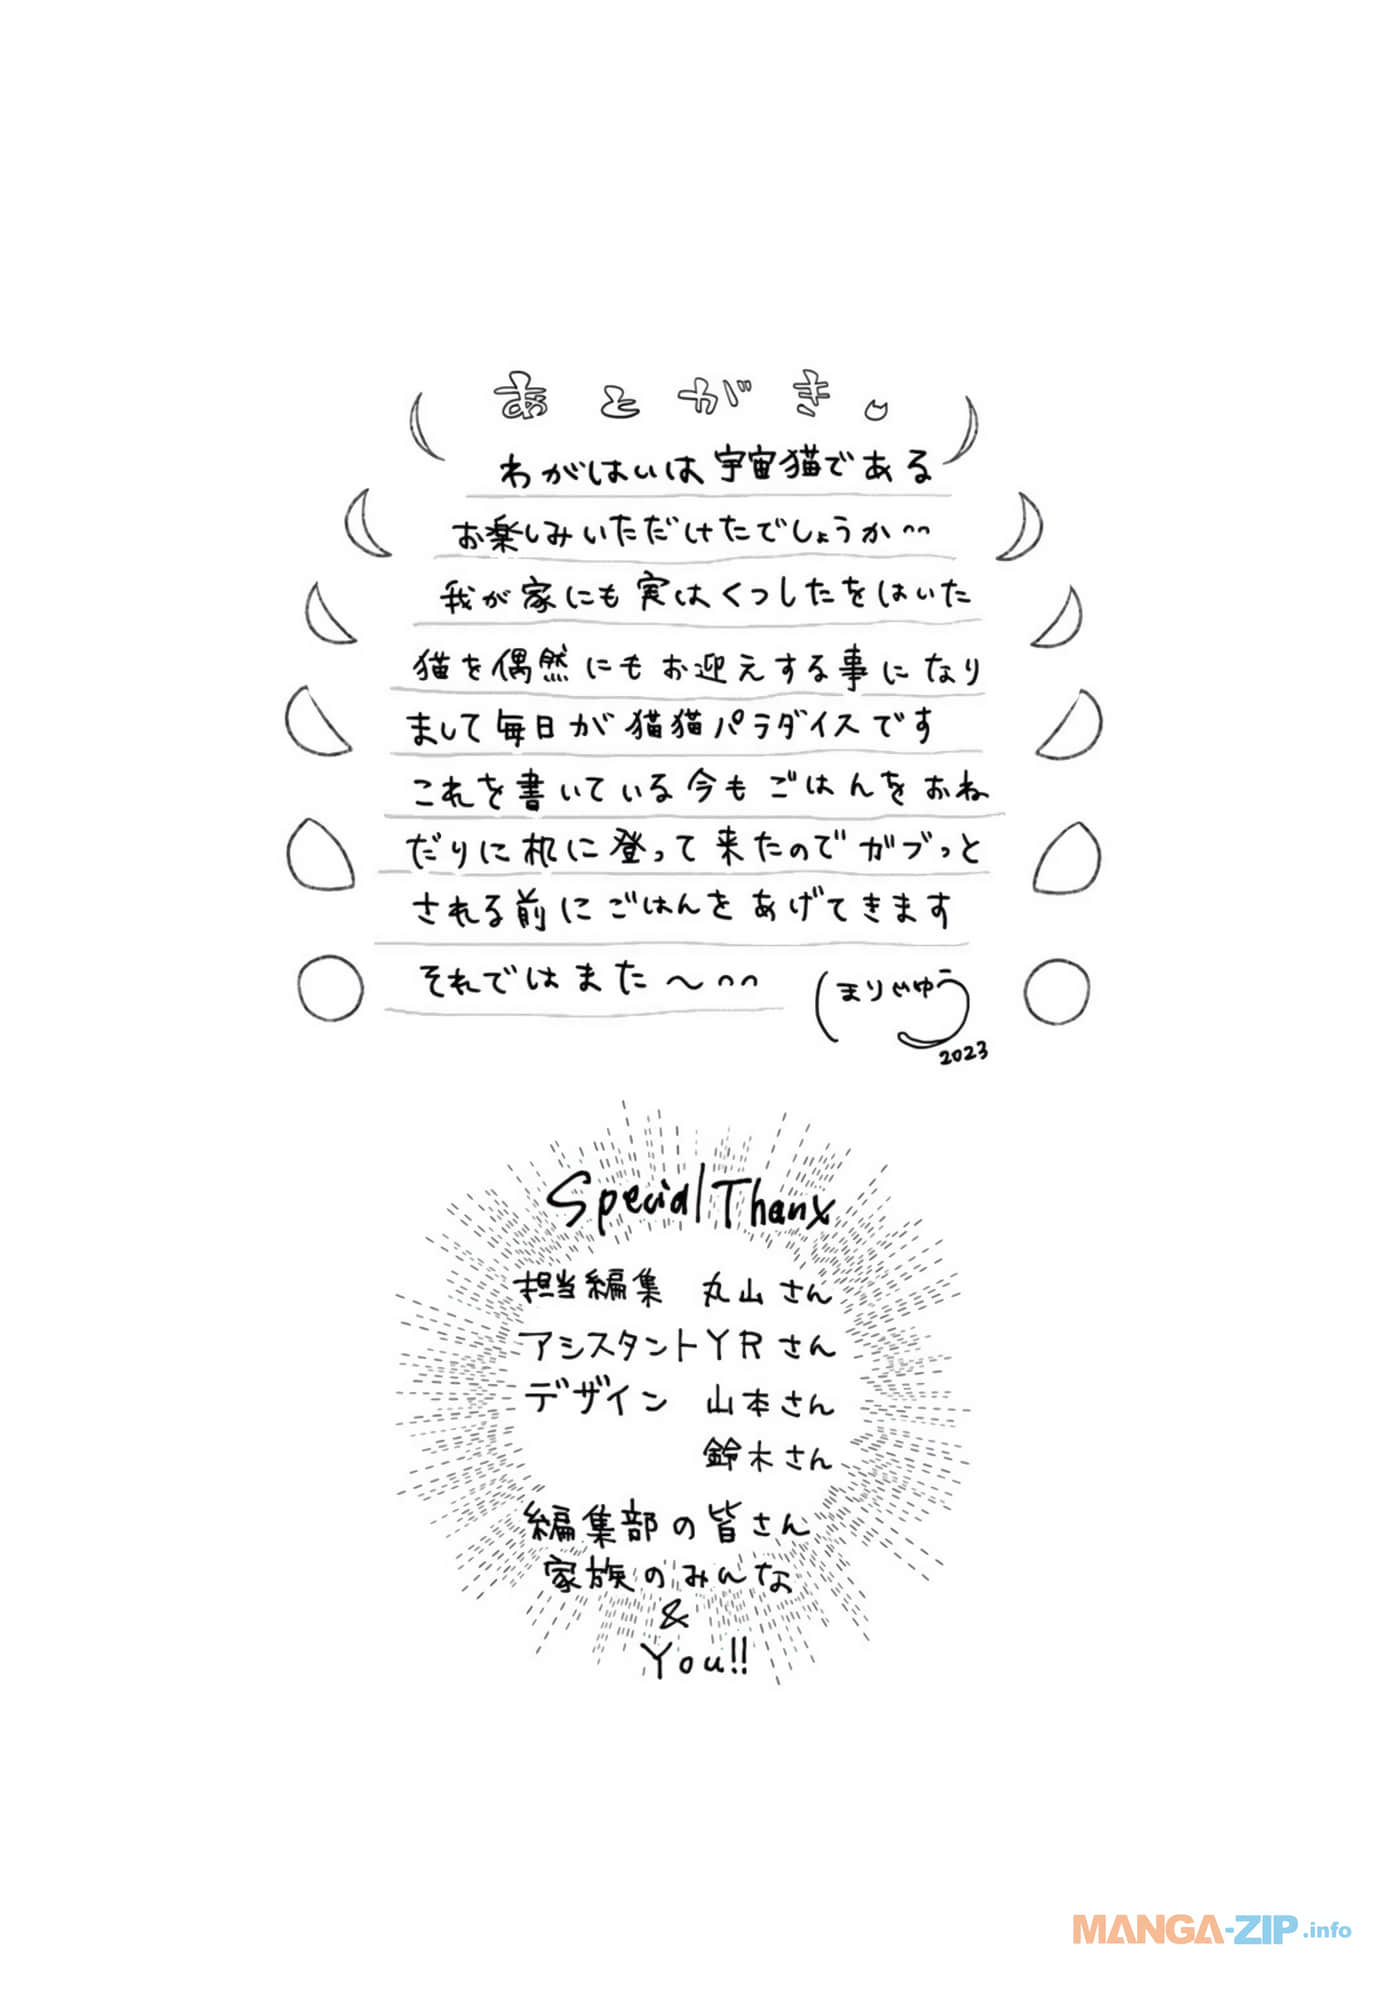 あとがき。
わがはいは宇宙猫である
お楽しみいただけたでしょうか^^
我が家にも実はくつしたをはいた
猫を偶然にもお迎えする事になり
まして毎日が猫猫パラダイスです
これを書いている今もごはんをおね
だりに机に登って来たのでガブっと
される前にごはんをあげてきます
それではまた〜^^
まりゅう
2023
Special Thanx
担当編集 丸山さん
アシスタントYRさん
デザイン 山本さん
鈴木さん
編集部の皆さん
家族のみんな
&
You!!
MANGA-ZIP.info